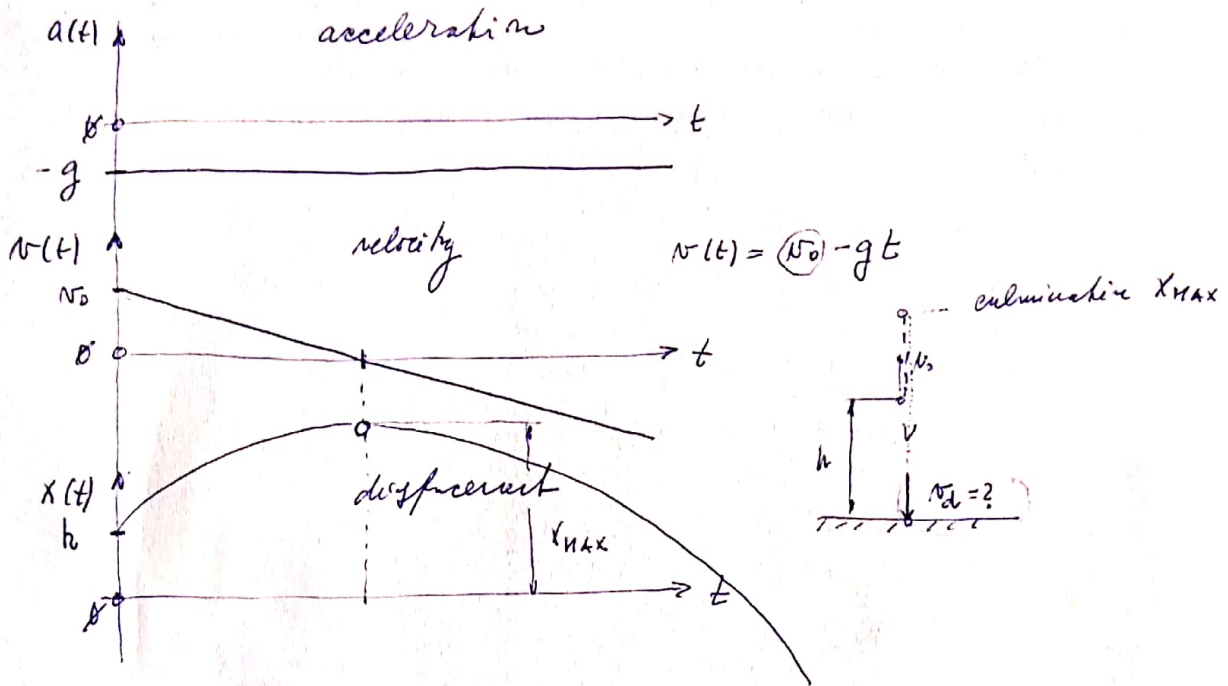 a(t) acceleration
0 t
-g
v(t) velocity v(t) = v₀ - gt
v₀
culmination X MAX
0 t
v₀
h
x(t) displacement
v_d = ?
h
X MAX
0 t